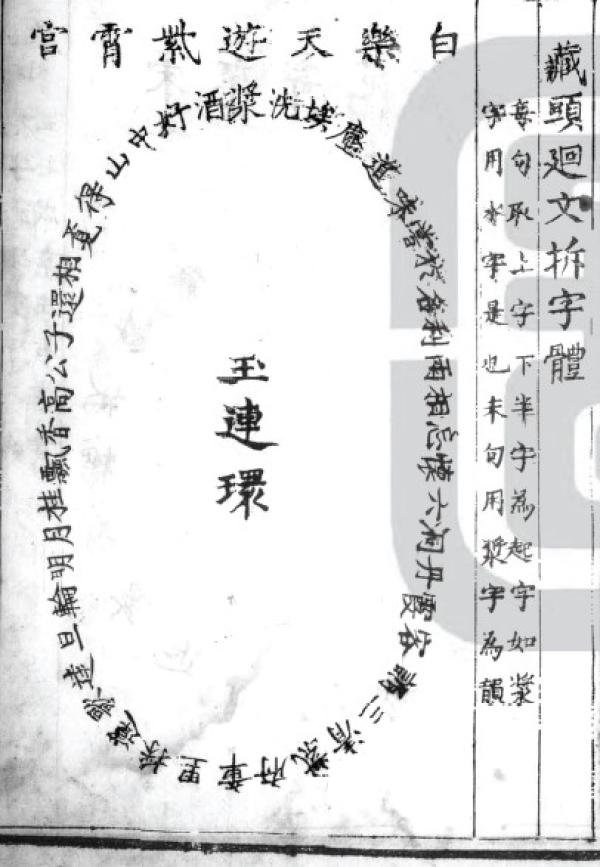 藏頭廻文拆字體
每句取上字下半字為起字如漿
字用水字是也末句用漿字為韻
白樂天遊紫霄宫
洗塵埃道味嘗於名利兩相忘懷六洞丹霞客誦三清紫府章里採蓮歌達旦輪明月桂飄香高公子還相覓得山中好酒漿
玉連環